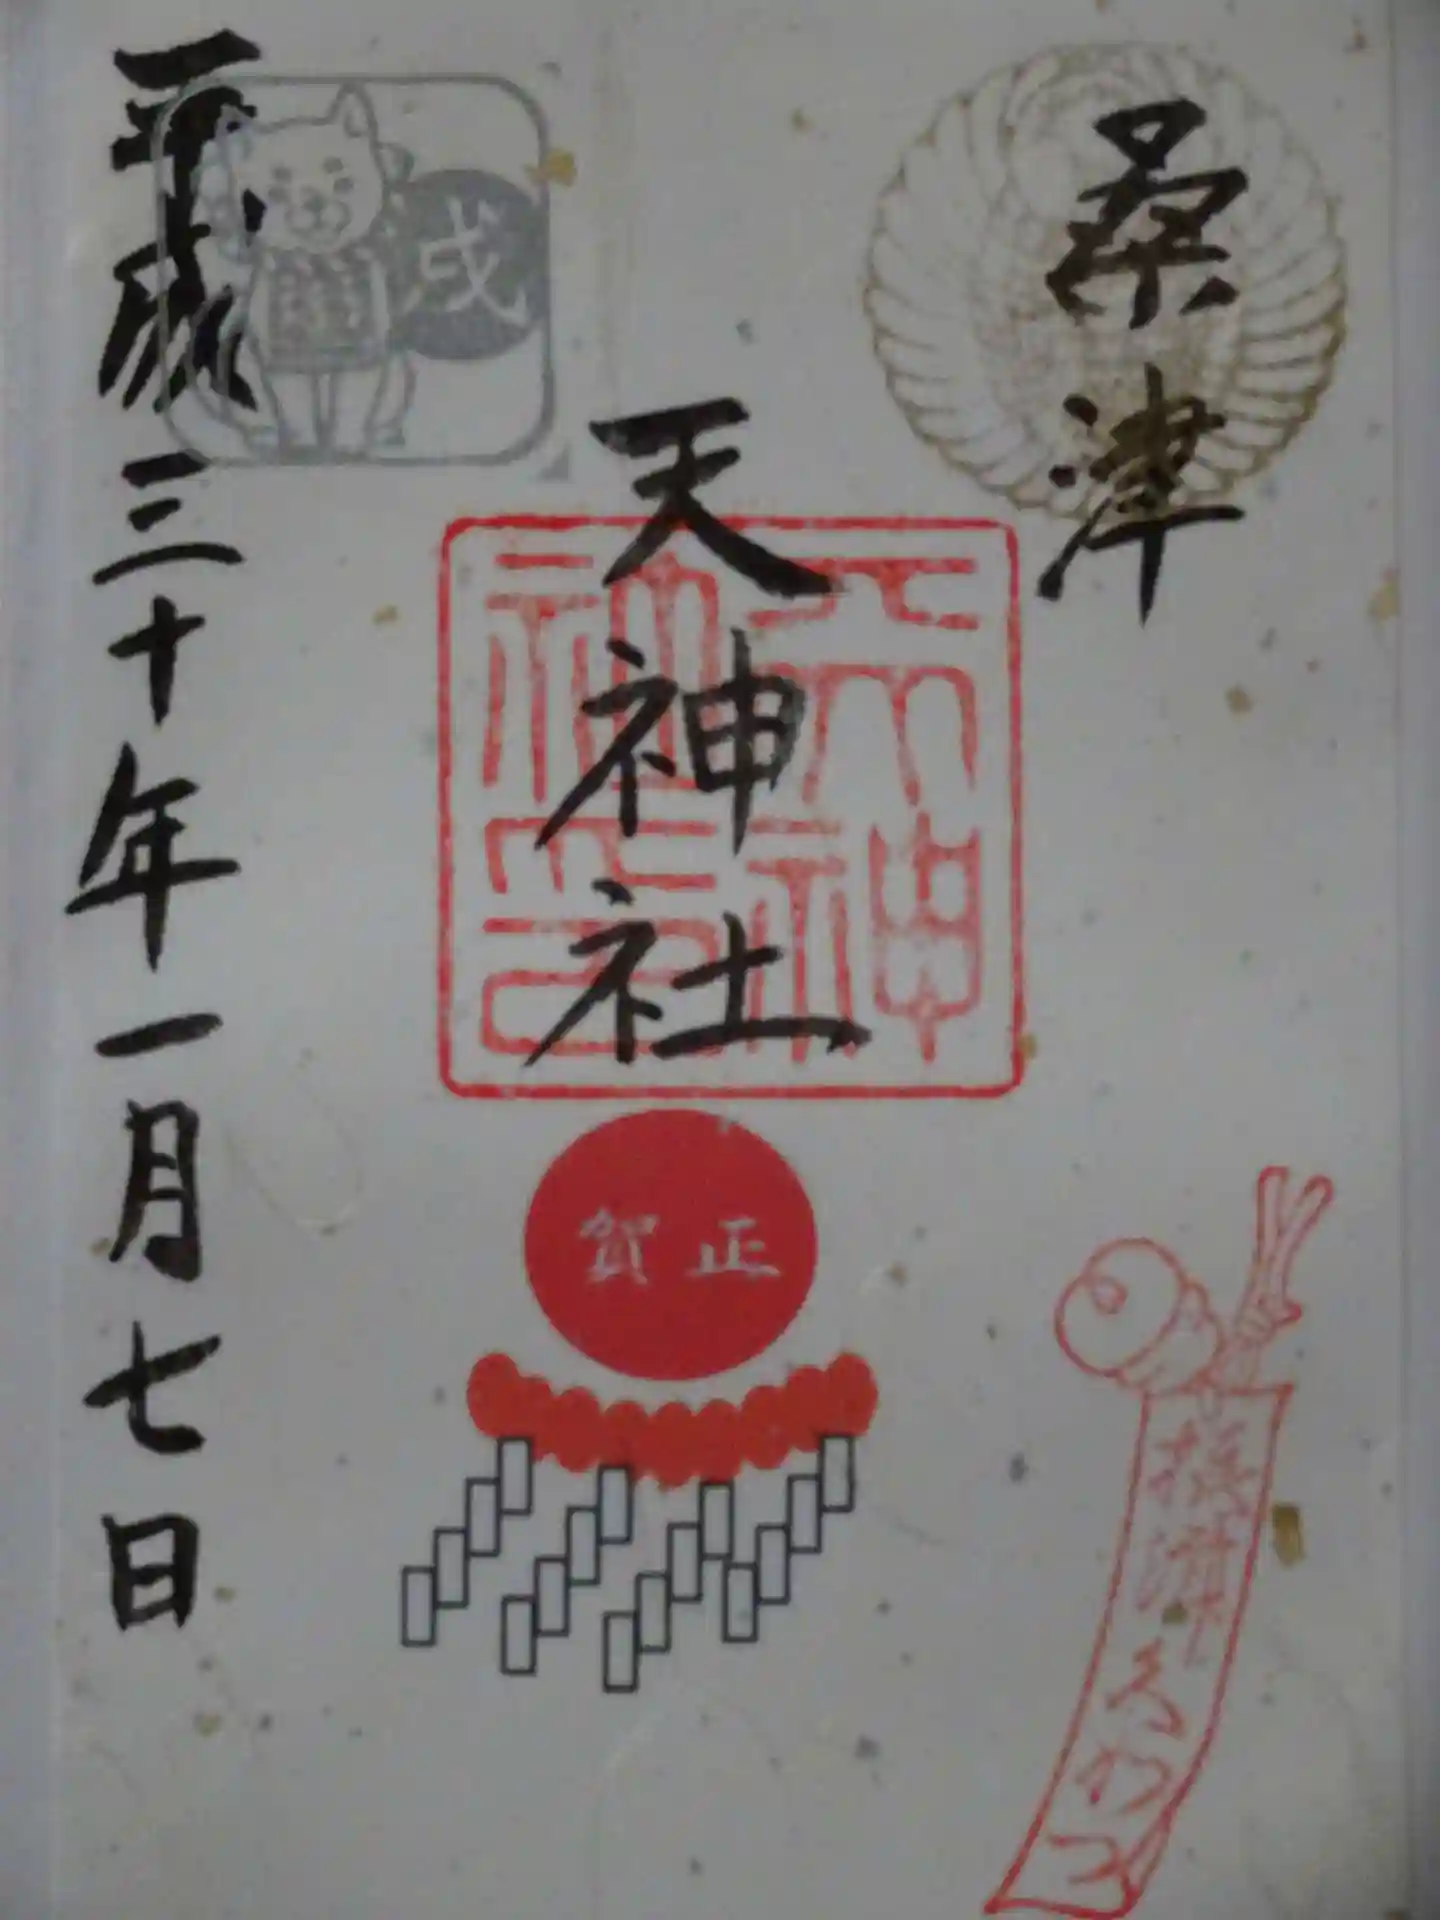 桑津
天神社
平成三十年一月七日
戌
天神
社印
正賀